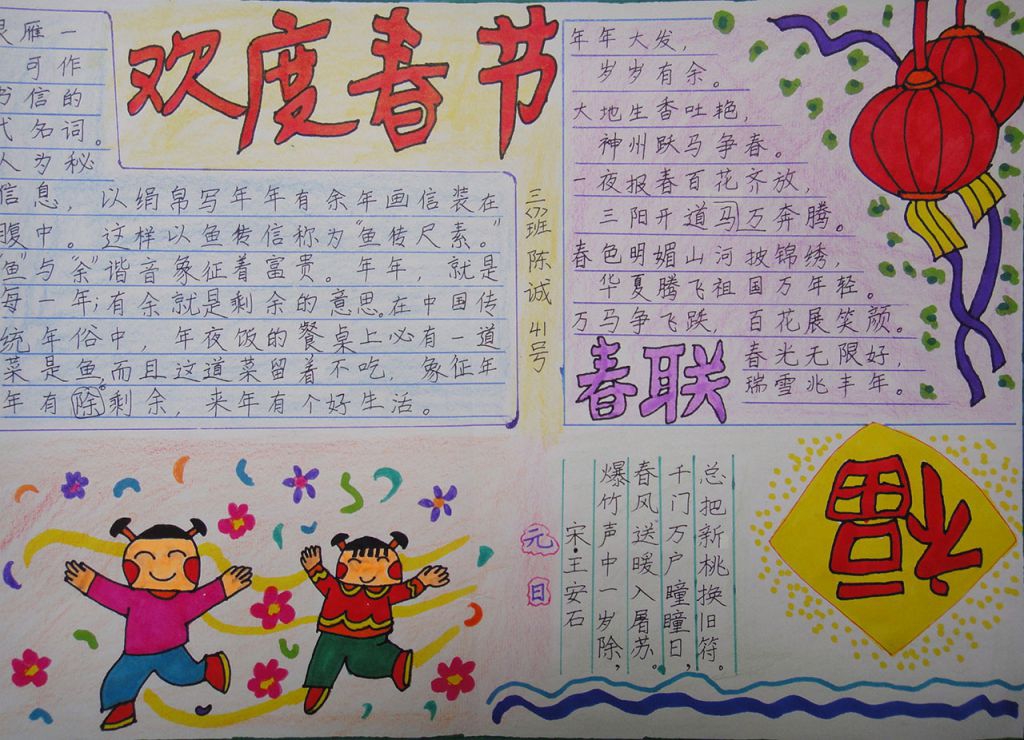 欢度春节
良雁一
可作
书信的
代名词。
人为秘
信息，以绢帛写年年有余年画信装在
腹中。这样以鱼传信称为“鱼传尺素。”
“鱼”与“余”谐音象征着富贵。年年，就是
每一年；有余就是剩余的意思。在中国传
统年俗中，年夜饭的餐桌上必有一道
菜是鱼，而且这道菜留着不吃，象征年
年有除剩余，来年有个好生活。
三(7)班 陈诚 41号
年年大发，
岁岁有余。
大地生香吐艳，
神州跃马争春。
一夜报春百花齐放，
三阳开道马万奔腾。
春色明媚山河披锦绣，
华夏腾飞祖国万年轻。
万马争飞跃，百花展笑颜。
春联
春光无限好，
瑞雪兆丰年。
元日
宋·王安石
爆竹声中一岁除，
春风送暖入屠苏。
千门万户曈曈日，
总把新桃换旧符。
福